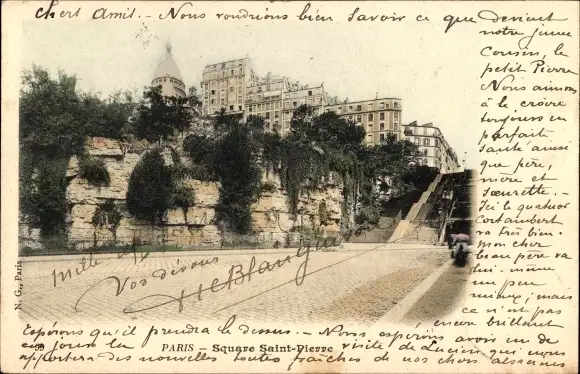 Chers Amis. - Nous voudrions bien savoir ce que devient
notre jeune
cousin, le
petit Pierre
Nous aimons
à le croire
toujours en
parfaite
santé ainsi
que père,
mère et
sœurette. -
Ici le quatuor
Cortambert
va très bien. -
mon cher
beau père va
lui-même
un peu
mieux; mais
ce n'est pas
encore brillant
Espérons qu'il prendra le dessus. - Nous espérons avoir un de
ces jours la visite de Lucien qui nous
apportera des nouvelles toutes fraîches de nos chers alsaciens
mille
Vos dévoués
HLeBlanc
N. G., Paris
39 PARIS - Square Saint-Pierre